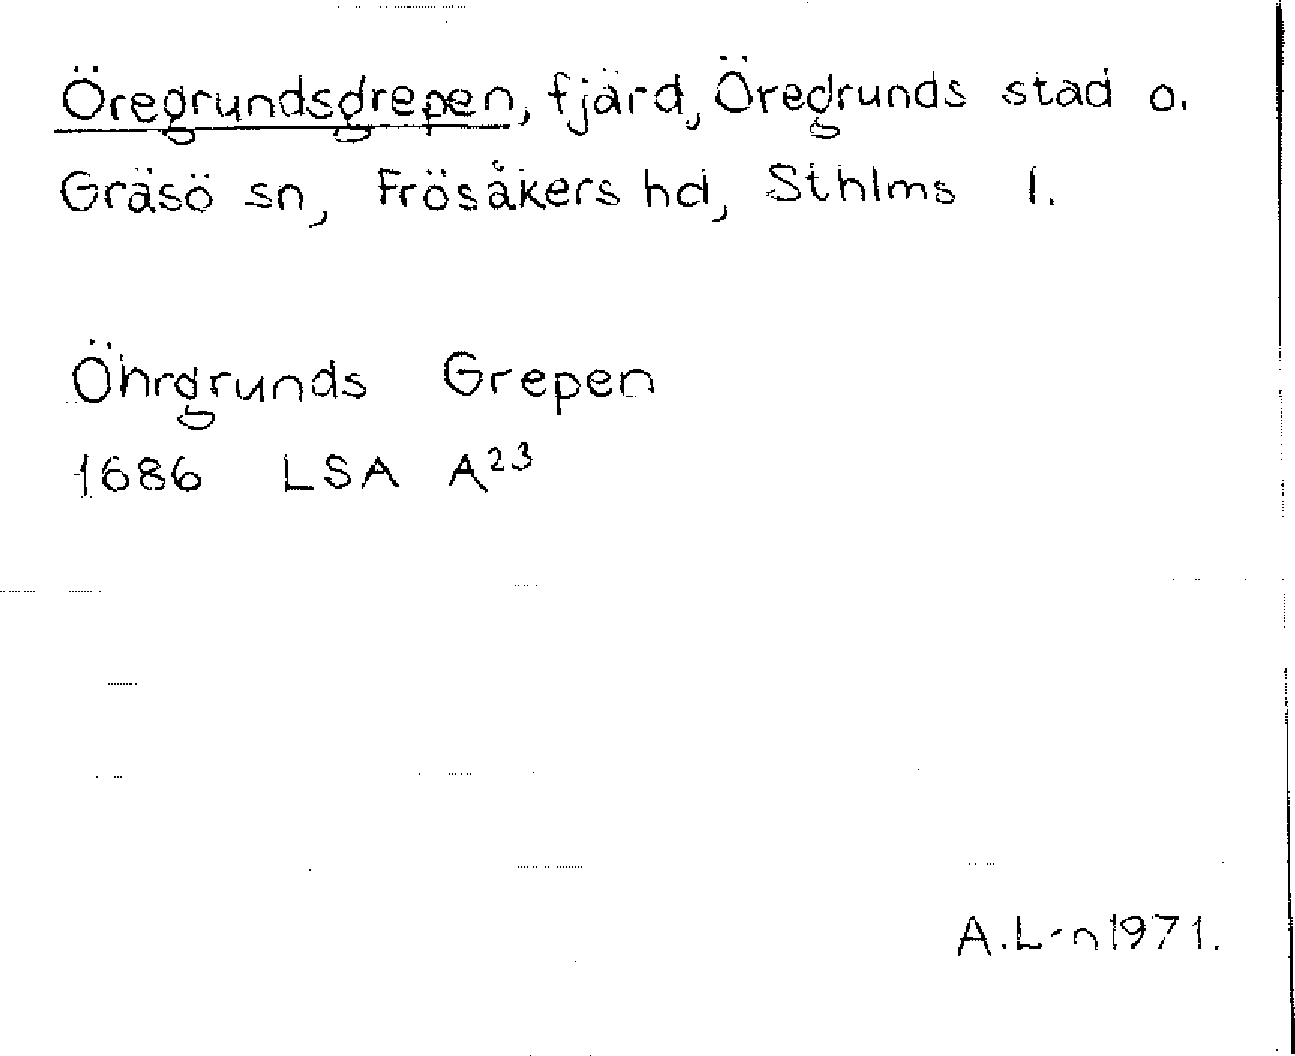 Öregrundsgrepen, fjärd, Öregrunds stad o.
Gräsö sn, Frösåkers hd, Sthlms l.
Öhrgrunds Grepen
1686 LSA A²³
A.L-n 1971.